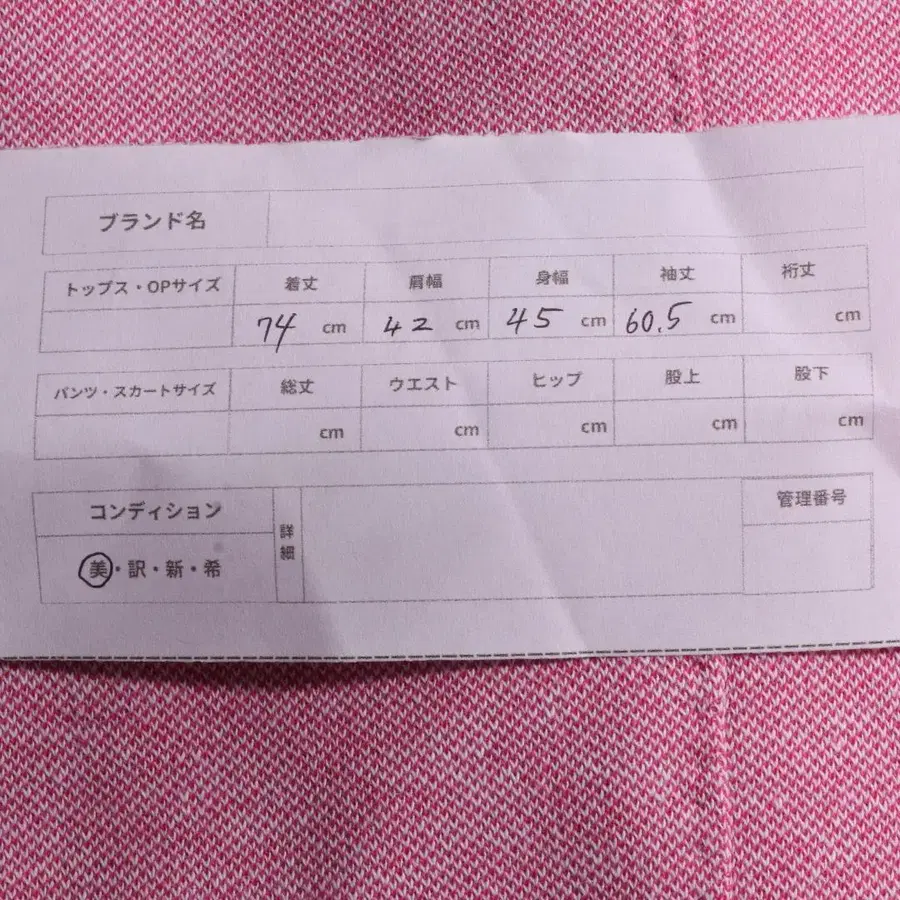 ブランド名
トップス・OPサイズ 着丈 肩幅 身幅 袖丈 裄丈
74 cm 42 cm 45 cm 60.5 cm cm
パンツ・スカートサイズ 総丈 ウエスト ヒップ 股上 股下
cm cm cm cm cm
コンディション 詳細 管理番号
美・訳・新・希